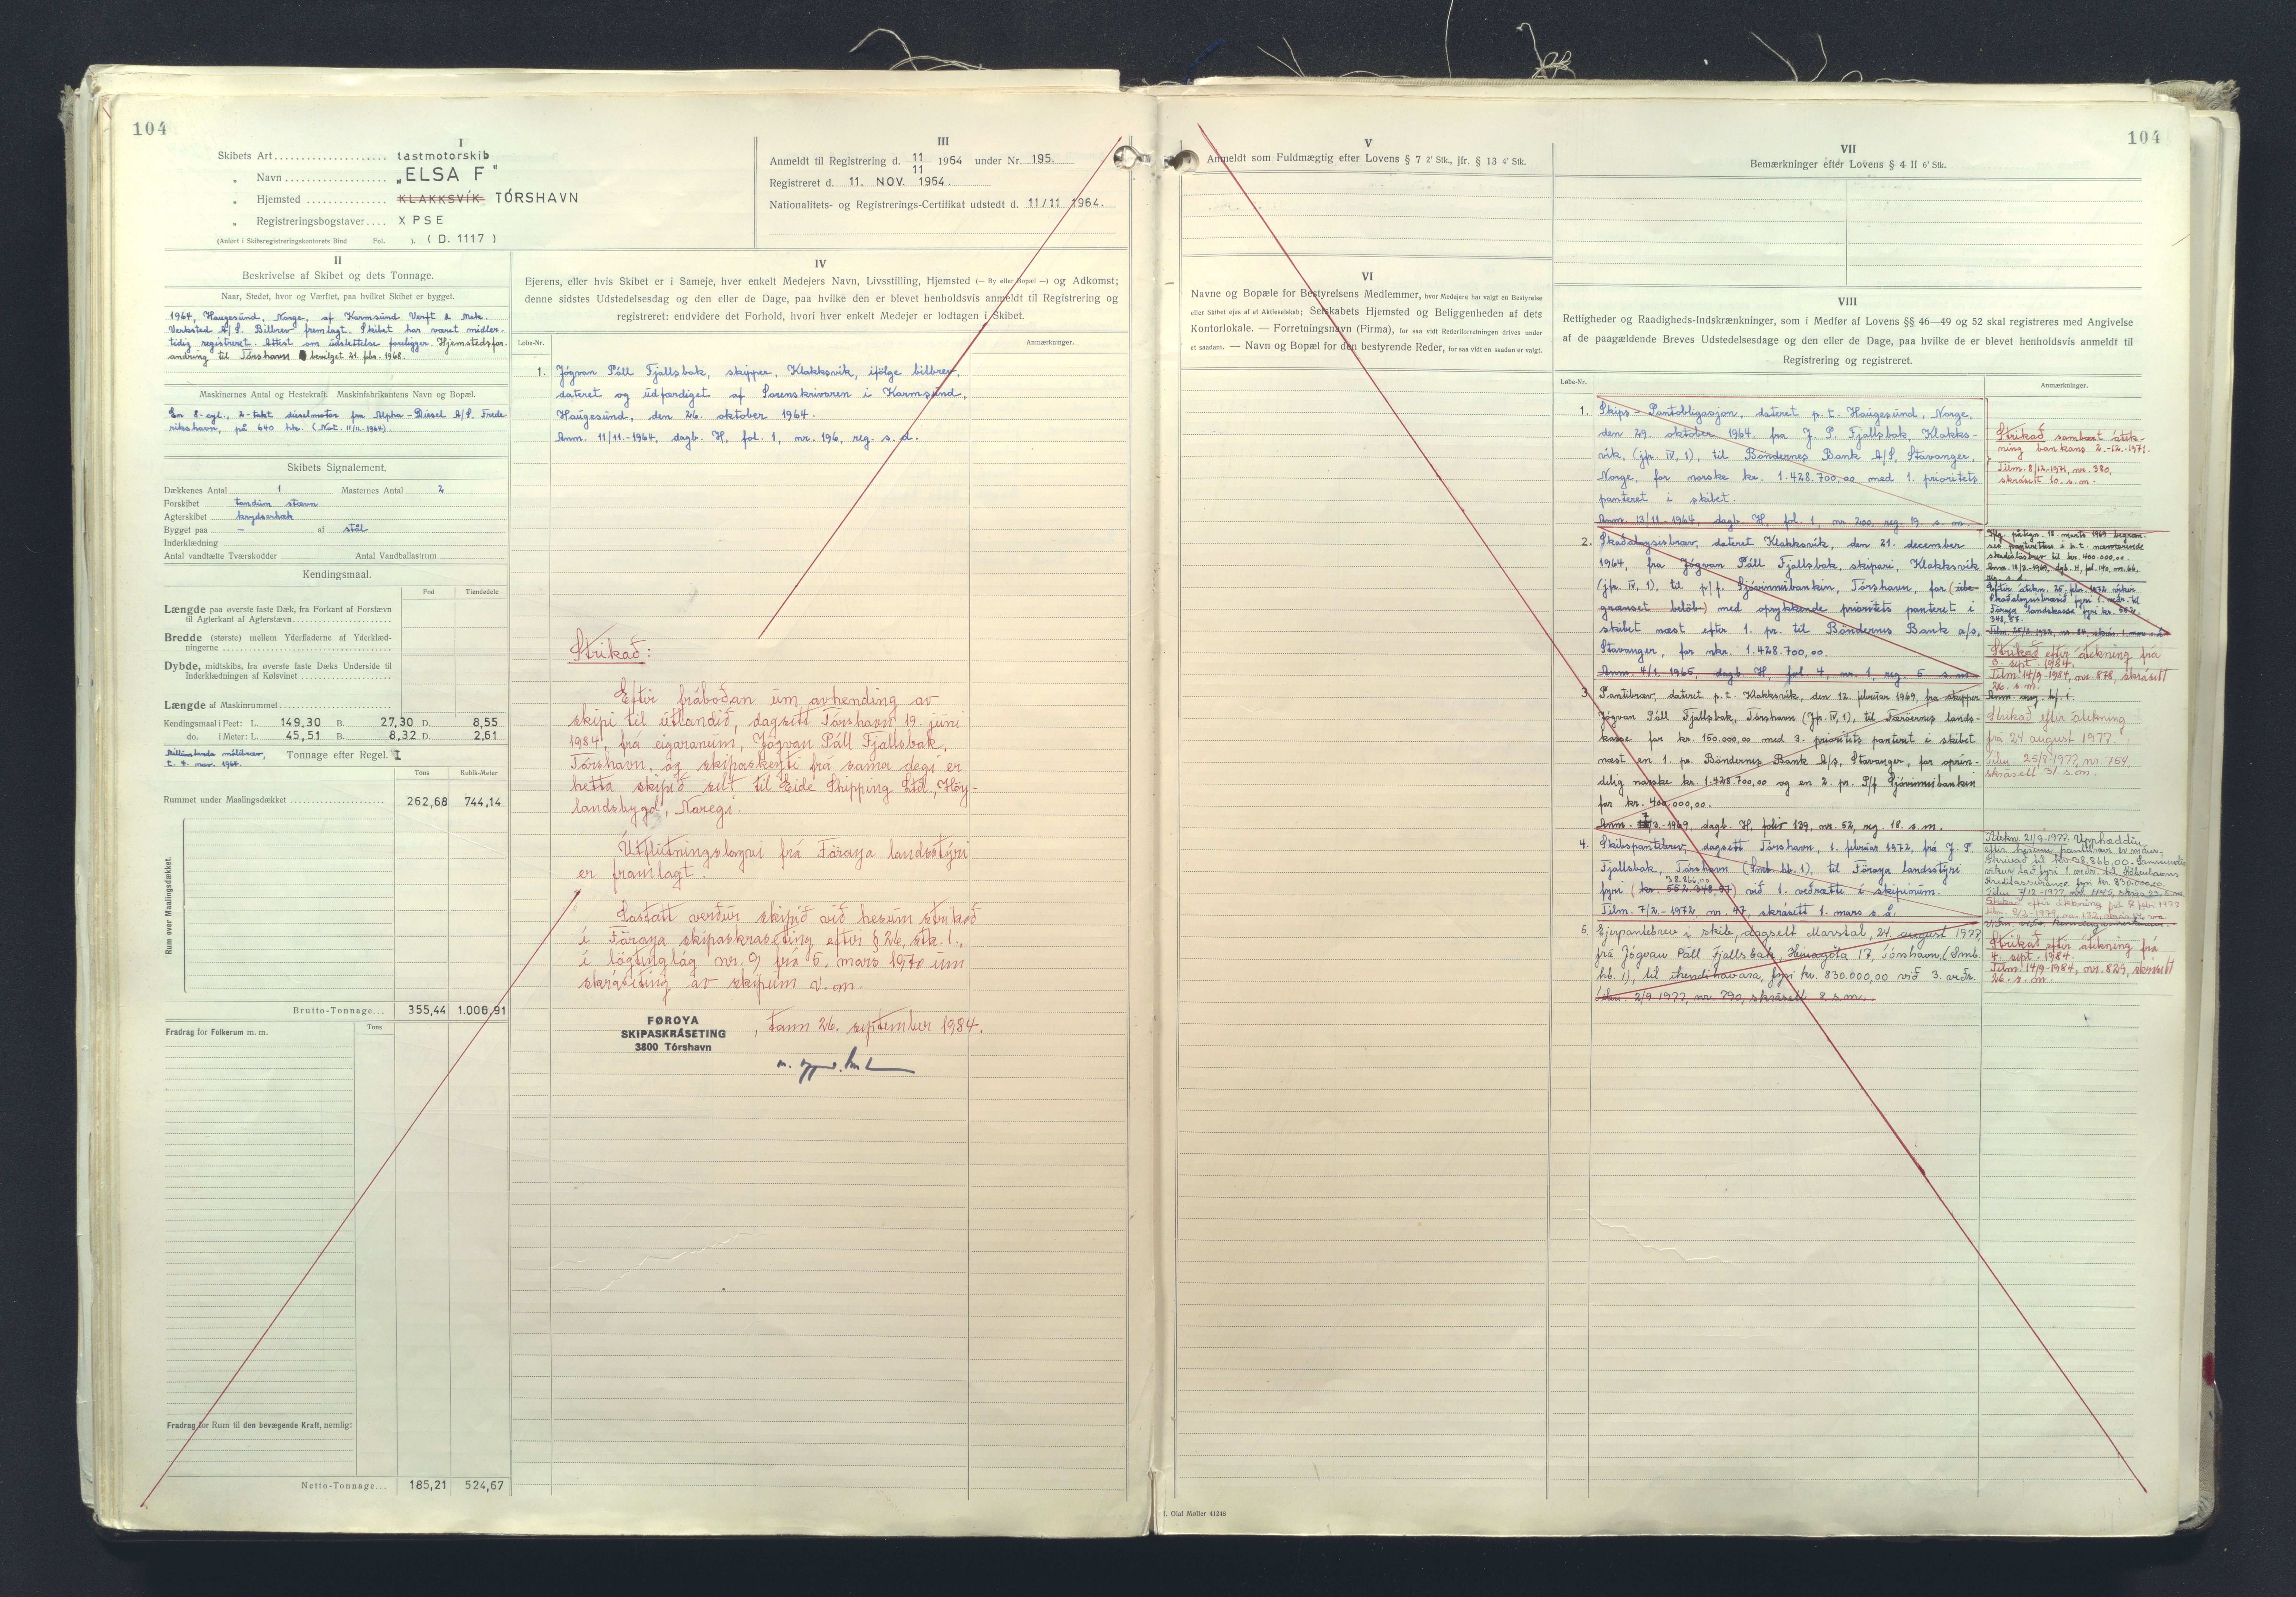 104
I
Skibets Art .................... Lastmotorskib
„ Navn ................... „ELSA F"
„ Hjemsted .............. KLAKKSVÍK TÓRSHAVN
„ Registreringsbogstaver .... XPSE
(Anført i Skibsregistreringskontorets Bind Fol. ). (D. 1117)
II
Beskrivelse af Skibet og dets Tonnage.
Naar, Stedet, hvor og Værftet, paa hvilket Skibet er bygget.
1964, Haugesund, Norge, af Karmsund Verft & Mek.
Verksted A/S. Bilbrev fremlagt. Skibet har været midler-
tidig registreret. Attest om udslettelse foreligger. Hjemstedsfor-
andring til Tórshavn bevilget 21. febr. 1968.
Maskinernes Antal og Hestekraft. Maskinfabrikantens Navn og Bopæl.
En 8-cyl., 2-takt dieselmotor fra Alpha-Diesel A/S, Frede-
rikshavn, på 640 hk. (Not. 11/11-1964).
Skibets Signalement.
Dækkenes Antal 1 Masternes Antal 2
Forskibet tandum stævn
Agterskibet krydserhæk
Bygget paa - af stål
Inderklædning
Antal vandtætte Tværskodder Antal Vandballastrum
Kendingsmaal.
Fod Tiendedele
Længde paa øverste faste Dæk, fra Forkant af Forstævn
til Agterkant af Agterstævn
Bredde (største) mellem Yderfladerne af Yderklæd-
ningerne
Dybde, midtskibs, fra øverste faste Dæks Underside til
Inderklædningen af Kølsvinet
Længde af Maskinrummet
Kendingsmaal i Feet: L. 149,30 B. 27,30 D. 8,55
do. i Meter: L. 45,51 B. 8,32 D. 2,61
målebrev,
4. nov. 1964.
Tonnage efter Regel. I
Tons Kubik-Meter
Rummet under Maalingsdækket 262,68 744,14
Rum over Maalingsdækket.
Brutto-Tonnage... 355,44 1.006,91
Fradrag for Folkerum m. m. Tons
Fradrag for Rum til den bevægende Kraft, nemlig:
Netto-Tonnage... 185,21 524,67
III
Anmeldt til Registrering d. 11/11 1964 under Nr. 195.
Registreret d. 11. NOV. 1964.
Nationalitets- og Registrerings-Certifikat udstedt d. 11/11 1964.
IV
Ejerens, eller hvis Skibet er i Sameje, hver enkelt Medejers Navn, Livsstilling, Hjemsted (— By eller Bopæl —) og Adkomst;
denne sidstes Udstedelsesdag og den eller de Dage, paa hvilke den er blevet henholdsvis anmeldt til Registrering og
registreret: endvidere det Forhold, hvori hver enkelt Medejer er lodtagen i Skibet.
Løbe-Nr. Anmærkninger.
1. Jógvan Páll Fjallsbak, skipper, Klakksvík, ifölge bilbrev,
dateret og udfærdiget af Sorenskrivaren i Karmsund,
Haugesund, den 26. oktober 1964.
Anm. 11/11-1964, dagb. H, fol. 1, nr. 196, reg. s. d.
Strikað:
Eftir fráboðan um avhending av
skipi til útlandið, dagsett Tórshavn 19. juni
1984, frá eigaranum, Jógvan Páll Fjallsbak,
Tórshavn, og skipaskeyti frá sama degi er
hetta skipið selt til Eide Shipping Ltd., Höy-
landsbygd, Noregi.
Útflutningsloyvi frá Föroya landsstýri
er framlagt.
Sostatt verður skipið við hesum strikað
í Föroya skipaskráseting eftir § 26, stk. 1.,
í lögtinglóg nr. 9 frá 5. mars 1970 um
skráseting av skipum v. m.
FØROYA
SKIPASKRÁSETING
3800 Tórshavn
, tann 26. september 1984.
104
V
Anmeldt som Fuldmægtig efter Lovens § 7 2' Stk., jfr. § 13 4' Stk.
VI
Navne og Bopæle for Bestyrelsens Medlemmer, hvor Medejere har valgt en Bestyrelse
eller Skibet ejes af et Aktieselskab; Selskabets Hjemsted og Beliggenheden af dets
Kontorlokale. — Forretningsnavn (Firma), for saa vidt Rederiforretningen drives under
et saadant. — Navn og Bopæl for den bestyrende Reder, for saa vidt en saadan er valgt.
VII
Bemærkninger efter Lovens § 4 II 6' Stk.
VIII
Rettigheder og Raadigheds-Indskrænkninger, som i Medfør af Lovens §§ 46—49 og 52 skal registreres med Angivelse
af de paagældende Breves Udstedelsesdage og den eller de Dage, paa hvilke de er blevet henholdsvis anmeldt til
Registrering og registreret.
Løbe-Nr. Anmærkninger.
1. Skips-Pantobligasjon, dateret p. t. Haugesund, Norge,
den 29. oktober 1964, fra J. P. Fjallsbak, Klakks-
vík, (jfr. IV, 1), til Böndernes Bank A/S, Stavanger,
Norge, for norske kr. 1.428.700,00 med 1. prioritets
panteret i skibet.
Anm. 13/11-1964, dagb. H, fol. 1, nr. 200, reg. 19. s. m.
Strikað sambært átek-
ning bankans 2.-12.-1971.
Tilm. 8/12-1971, nr. 380,
skrásett 10. s. m.
2. Skaðaloysisbrav, dateret Klakksvík, den 21. december
1964, fra Jógvan Páll Fjallsbak, skipari, Klakksvík
(jfr. IV, 1), til p/f. Sjóvinnubankin, Tórshavn, for (ube-
grænset belöb) med oprykkende prioritets panteret i
skibet næst efter 1. pr. til Böndernes Bank a/s,
Stavanger, for nkr. 1.428.700,00.
Anm. 4/1. 1965, dagb. H, fol. 4, nr. 1, reg. 5. s. m.
Iflg. påtegn. 18. marts 1969 begræn-
ses panteretten i h. t. nærværende
skadeslösbrev til kr. 400.000,00.
Anm. 18/3-1969, dgb. H, fol. 140, nr. 66,
reg. s. d.
Eftir átekn. 25. febr. 1972 víkir
skaðaloysisbrævið fyri 1. veðr. til
Föroya landskassa fyri kr. 552.
348,87.
Strikað eftir átekning frá
3. sept. 1984.
Tilm. 14/9-1984, nr. 828, skrásett
26. s. m.
3. Pantibrav, dateret p. t. Klakksvík, den 12. februar 1969, fra skipper
Jógvan Páll Fjallsbak, Tórshavn (Jfr. IV, 1), til Færöernes lands-
kasse for kr. 150.000,00 med 3. prioritets panteret i skibet
næst en 1. pr. Böndernes Bank A/S, Stavanger, for oprin-
delig norske kr. 1.428.700,00 og en 2. pr. P/f Sjóvinnubankin
for kr. 400.000,00.
Anm. 7/3-1969, dagb. H, folio 139, nr. 52, reg. 18. s. m.
Strikað eftir átekning
frá 24 august 1977.
Tilm. 25/8-1977, nr. 754,
skrásett 31. s. m.
4. Skibspantebrev, dagsett Tórshavn, 1. februar 1972, frá J. P.
Fjallsbak, Tórshavn (Smb. hb. 1), til Föroya landsstýri
38.866,00
fyri (kr. 552.348,87) við 1. veðrætti í skipinum.
Tilm. 7/2-1972, nr. 47, skrásett 1. mars s. á.
Átekn. 21/9-1977. Upphæddin
5. Ejerpantebrev i skib, dagsett Marstal, 24. august 1977,
frá Jógvan Páll Fjallsbak, Heinagöta 17, Tórshavn, (Smb.
hb. 1), til ihendihavara, fyri kr. 830.000,00 við 3. veðr.
Tilm. 2/9-1977, nr. 790, skrásett 8. s. m.
Strikað eftir átekning frá
4. sept. 1984.
Tilm. 14/9-1984, nr. 829, skrásett
26. s. m.
J. Olaf Møller 41248